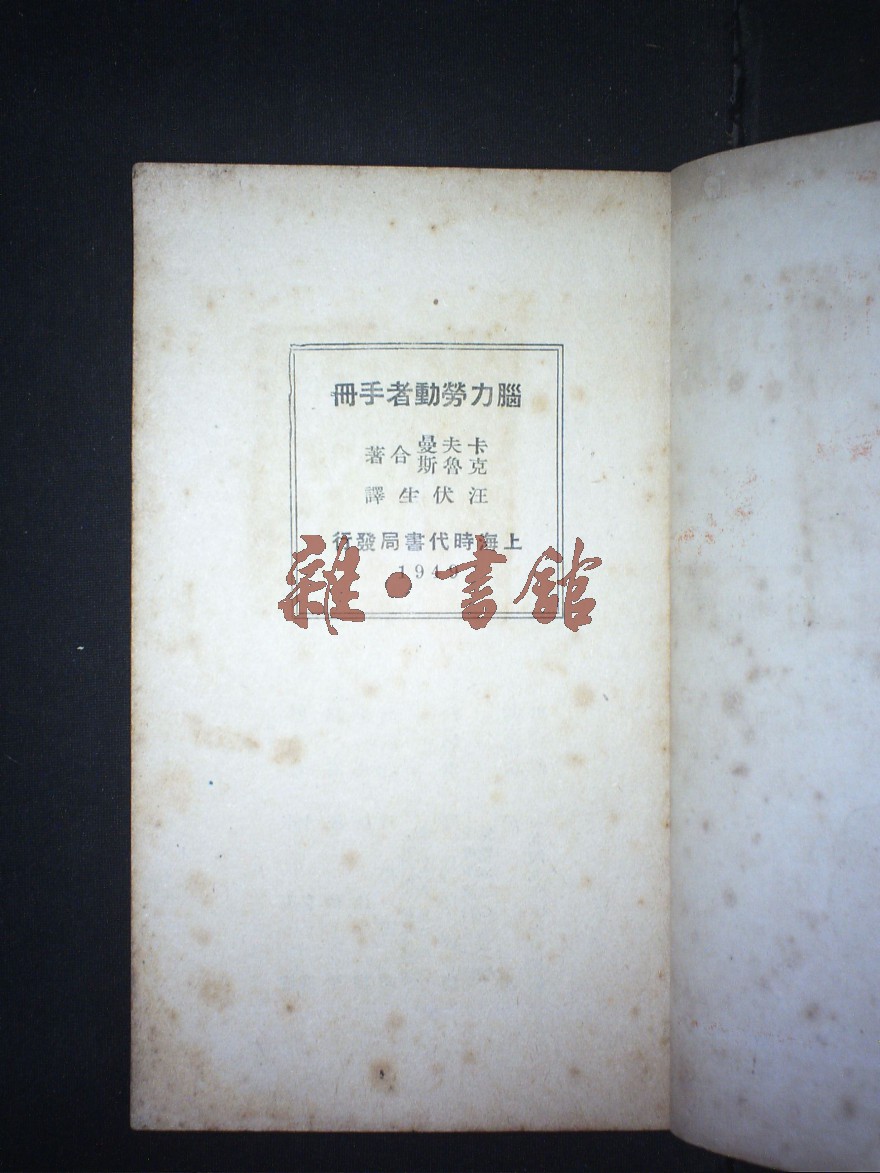 腦力勞動者手冊
卡夫曼
克魯斯
合著
汪伏生譯
上海時代書局發行
1949
雜·書館